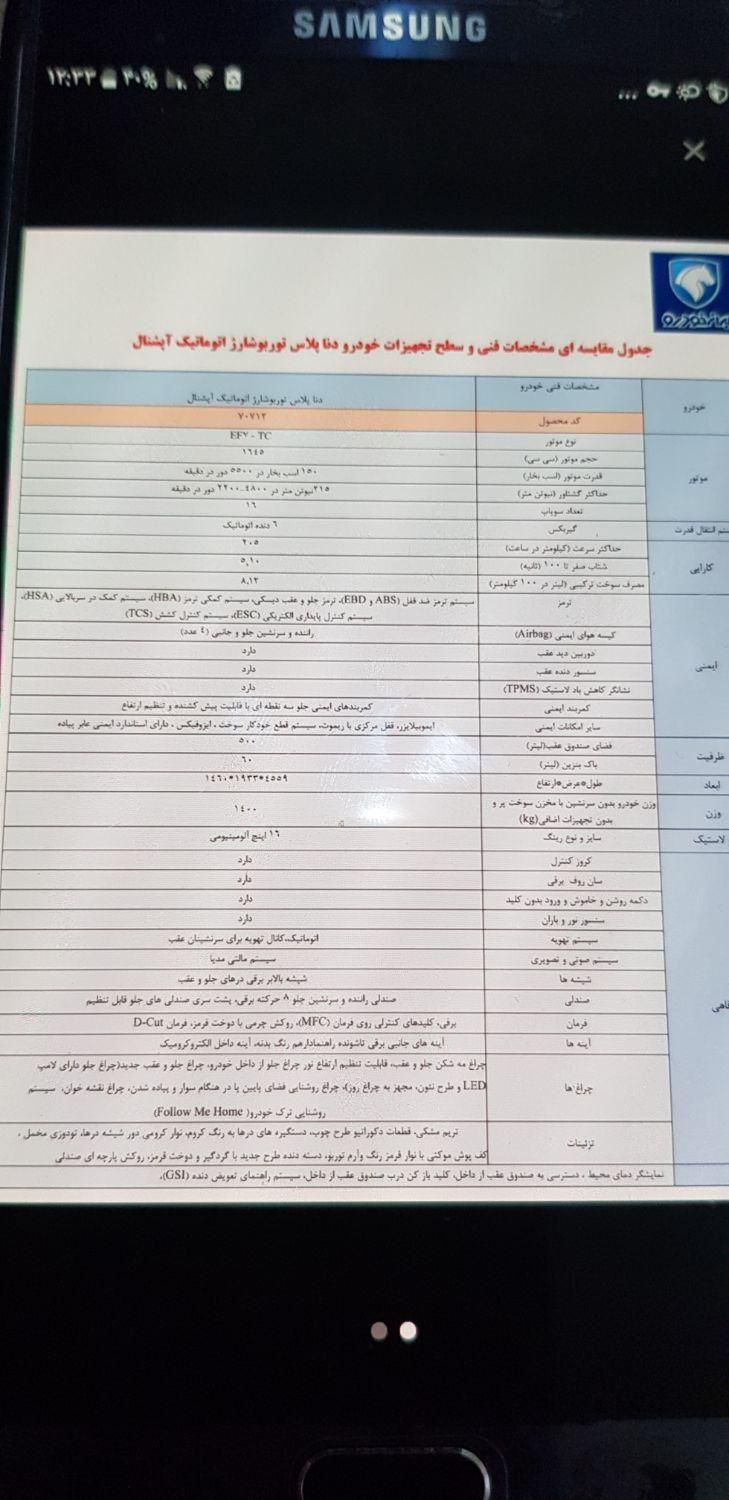 SAMSUNG
۱۲:۳۳ ۴۰%
ایران‌خودرو
جدول مقایسه ای مشخصات فنی و سطح تجهیزات خودرو دنا پلاس توربوشارژ اتوماتیک آپشنال
خودرو مشخصات فنی خودرو دنا پلاس توربوشارژ اتوماتیک آپشنال
کد محصول ۷۰۷۱۲
موتور نوع موتور EF۷ - TC
حجم موتور (سی سی) ۱٦٤٥
قدرت موتور (اسب بخار) ۱۵۰ اسب بخار در ۵۵۰۰ دور در دقیقه
حداکثر گشتاور (نیوتن متر) ۲۱۵نیوتن متر در ٤۸۰۰-۲۲۰۰ دور در دقیقه
تعداد سوپاپ ۱٦
ستم انتقال قدرت گیربکس ٦ دنده اتوماتیک
کارایی حداکثر سرعت (کیلومتر در ساعت) ۲۰۵
شتاب صفر تا ۱۰۰ (ثانیه)
مصرف سوخت ترکیبی (لیتر در ۱۰۰ کیلومتر) ۸,۱۲
ایمنی ترمز سیستم ترمز ضد قفل (ABS و EBD)، ترمز جلو و عقب دیسکی، سیستم کمکی ترمز (HBA)، سیستم کمک در سربالایی (HSA)،
سیستم کنترل پایداری الکتریکی (ESC)، سیستم کنترل کشش (TCS)
کیسه هوای ایمنی (Airbag) راننده و سرنشین جلو و جانبی (٤ عدد)
دوربین دید عقب دارد
سنسور دنده عقب دارد
نشانگر کاهش باد لاستیک (TPMS) دارد
کمربند ایمنی کمربندهای ایمنی جلو سه نقطه ای با قابلیت پیش کشنده و تنظیم ارتفاع
سایر امکانات ایمنی ایموبیلایزر، قفل مرکزی با ریموت، سیستم قطع خودکار سوخت ، ایزوفیکس ، دارای استاندارد ایمنی عابر پیاده
ظرفیت فضای صندوق عقب(لیتر) ۵۰۰
باک بنزین (لیتر) ٦۰
ابعاد طول*عرض*ارتفاع ٤۵۵۹*۱۹۳۳*۱٤٦۰
وزن وزن خودرو بدون سرنشین با مخزن سوخت پر و
بدون تجهیزات اضافی(kg) ۱٤۰۰
لاستیک سایز و نوع رینگ ۱٦ اینچ آلومینیومی
کروز کنترل دارد
سان روف برقی دارد
دکمه روشن و خاموش و ورود بدون کلید دارد
سنسور نور و باران دارد
سیستم تهویه اتوماتیک،کانال تهویه برای سرنشینان عقب
سیستم صوتی و تصویری سیستم مالتی مدیا
شیشه ها شیشه بالابر برقی درهای جلو و عقب
فاهی صندلی صندلی راننده و سرنشین جلو ۸ حرکته برقی، پشت سری صندلی های جلو قابل تنظیم
فرمان برقی، کلیدهای کنترلی روی فرمان (MFC)، روکش چرمی با دوخت قرمز، فرمان D-Cut
آینه ها آینه های جانبی برقی تاشونده راهنمادارهم رنگ بدنه، آینه داخل الکتروکرومیک
چراغ ها چراغ مه شکن جلو و عقب، قابلیت تنظیم ارتفاع نور چراغ جلو از داخل خودرو، چراغ جلو و عقب جدید(چراغ جلو دارای لامپ
LED و طرح نئون، مجهز به چراغ روز)، چراغ روشنایی فضای پایین پا در هنگام سوار و پیاده شدن، چراغ نقشه خوان، سیستم
روشنایی ترک خودرو( Follow Me Home)
تزئینات تریم مشکی، قطعات دکوراتیو طرح چوب، دستگیره های درها به رنگ کروم، نوار کرومی دور شیشه درها، تودوزی مخمل ،
کف پوش موکتی با نوار قرمز رنگ وآرم توربو، دسته دنده طرح جدید با گردگیر و دوخت قرمز، روکش پارچه ای صندلی
نمایشگر دمای محیط ، دسترسی به صندوق عقب از داخل، کلید باز کن درب صندوق عقب از داخل، سیستم راهنمای تعویض دنده (GSI)،